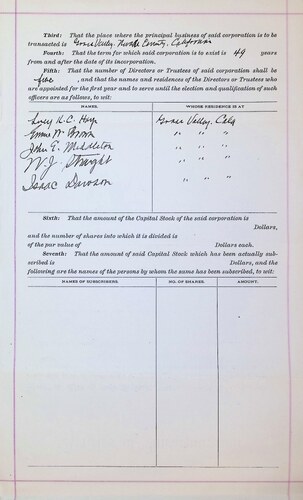 Third: That the place where the principal business of said corporation is to be
transacted is Grass Valley, Nevada County, California
Fourth: That the term for which said corporation is to exist is 49 years
from and after the date of its incorporation.
Fifth: That the number of Directors or Trustees of said corporation shall be
five, and that the names and residences of the Directors or Trustees who
are appointed for the first year and to serve until the election and qualification of such
officers are as follows, to wit:
NAMES. WHOSE RESIDENCE IS AT
K. C. Grass Valley, Cala
" " "
John E. Middleton " " "
W. J. " " "
Isaac Dawson " " "
Sixth: That the amount of the Capital Stock of the said corporation is
Dollars,
and the number of shares into which it is divided is
of the par value of Dollars each.
Seventh: That the amount of said Capital Stock which has been actually sub-
scribed is Dollars, and the
following are the names of the persons by whom the same has been subscribed, to wit:
NAMES OF SUBSCRIBERS. NO. OF SHARES. AMOUNT.